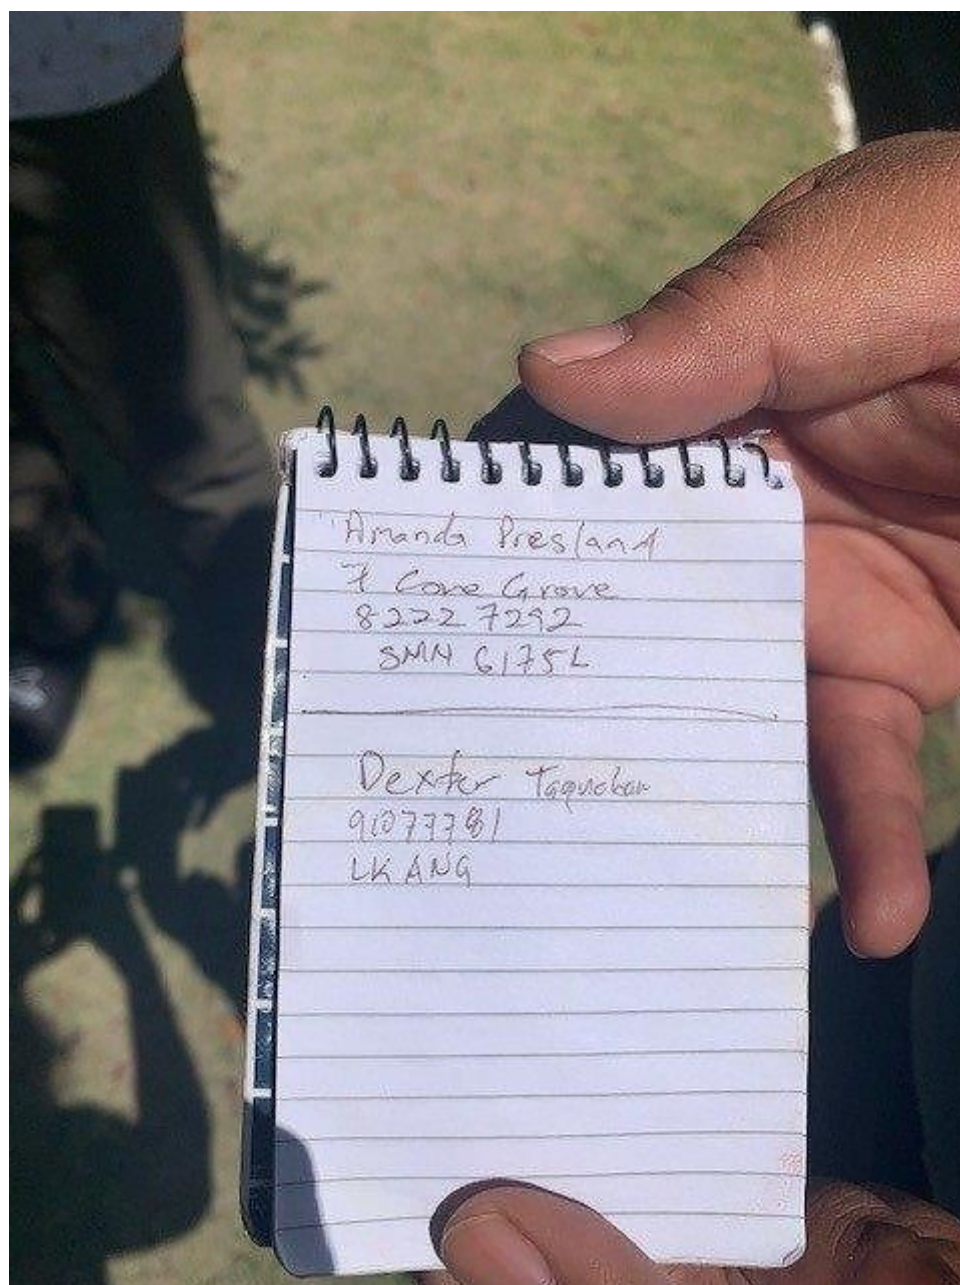 Amanda Presland
7 Cove Grove
8222 7292
SMN 6175L
Dexter
91077781
LKANG